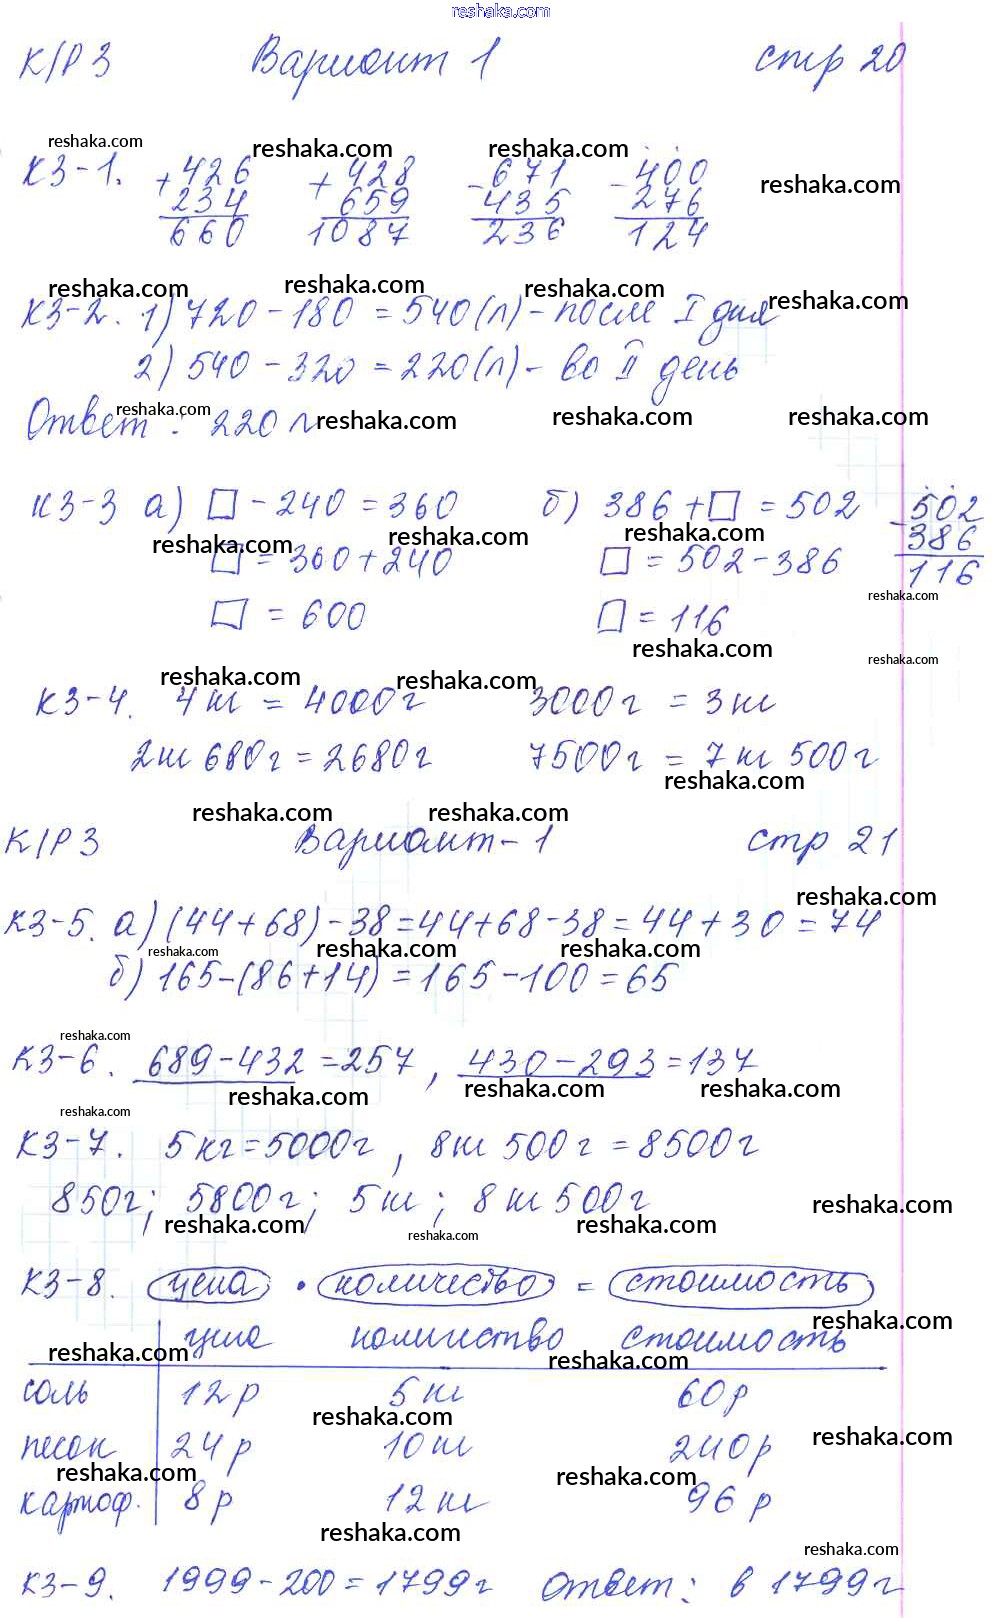 reshaka.com
К/Р 3 Вариант 1 стр 20
reshaka.com reshaka.com reshaka.com reshaka.com
К3-1. +426 +428 -671 -400
234 659 435 276
660 1087 236 124
reshaka.com reshaka.com reshaka.com reshaka.com
К3-2. 1) 720 - 180 = 540 (л) - после I дня
2) 540 - 320 = 220 (л) - во II день
reshaka.com reshaka.com reshaka.com reshaka.com
Ответ: 220 л
К3-3 а) □ - 240 = 360 б) 386 + □ = 502 -502
reshaka.com reshaka.com reshaka.com 386
□ = 360 + 240 □ = 502 - 386 116
reshaka.com
□ = 600 □ = 116
reshaka.com reshaka.com
reshaka.com reshaka.com
К3-4. 4 кг = 4000 г 3000 г = 3 кг
2 кг 680 г = 2680 г 7500 г = 7 кг 500 г
reshaka.com
reshaka.com reshaka.com
К/Р 3 Вариант - 1 стр 21
reshaka.com
К3-5. а) (44 + 68) - 38 = 44 + 68 - 38 = 44 + 30 = 74
reshaka.com reshaka.com reshaka.com
б) 165 - (86 + 14) = 165 - 100 = 65
reshaka.com
К3-6. 689 - 432 = 257, 430 - 293 = 137
reshaka.com reshaka.com reshaka.com
reshaka.com
К3-7. 5 кг = 5000 г, 8 кг 500 г = 8500 г
850 г; 5800 г; 5 кг; 8 кг 500 г
reshaka.com reshaka.com reshaka.com
reshaka.com
К3-8. цена · количество = стоимость
reshaka.com
цена количество стоимость
reshaka.com reshaka.com
соль 12 р 5 кг 60 р
reshaka.com
песок 24 р 10 кг 240 р
reshaka.com
reshaka.com reshaka.com
картоф. 8 р 12 кг 96 р
reshaka.com
reshaka.com
К3-9. 1999 - 200 = 1799 г Ответ: в 1799 г